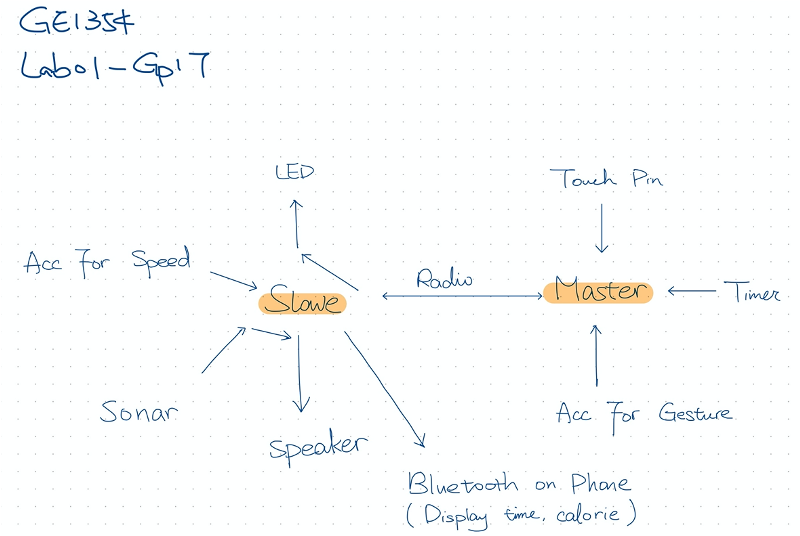 GE1354
Lab01-Gp17
LED
Touch Pin
Acc For Speed
Radio
Slave
Master
Timer
Sonar
Acc For Gesture
Speaker
Bluetooth on Phone
(Display time, calorie)